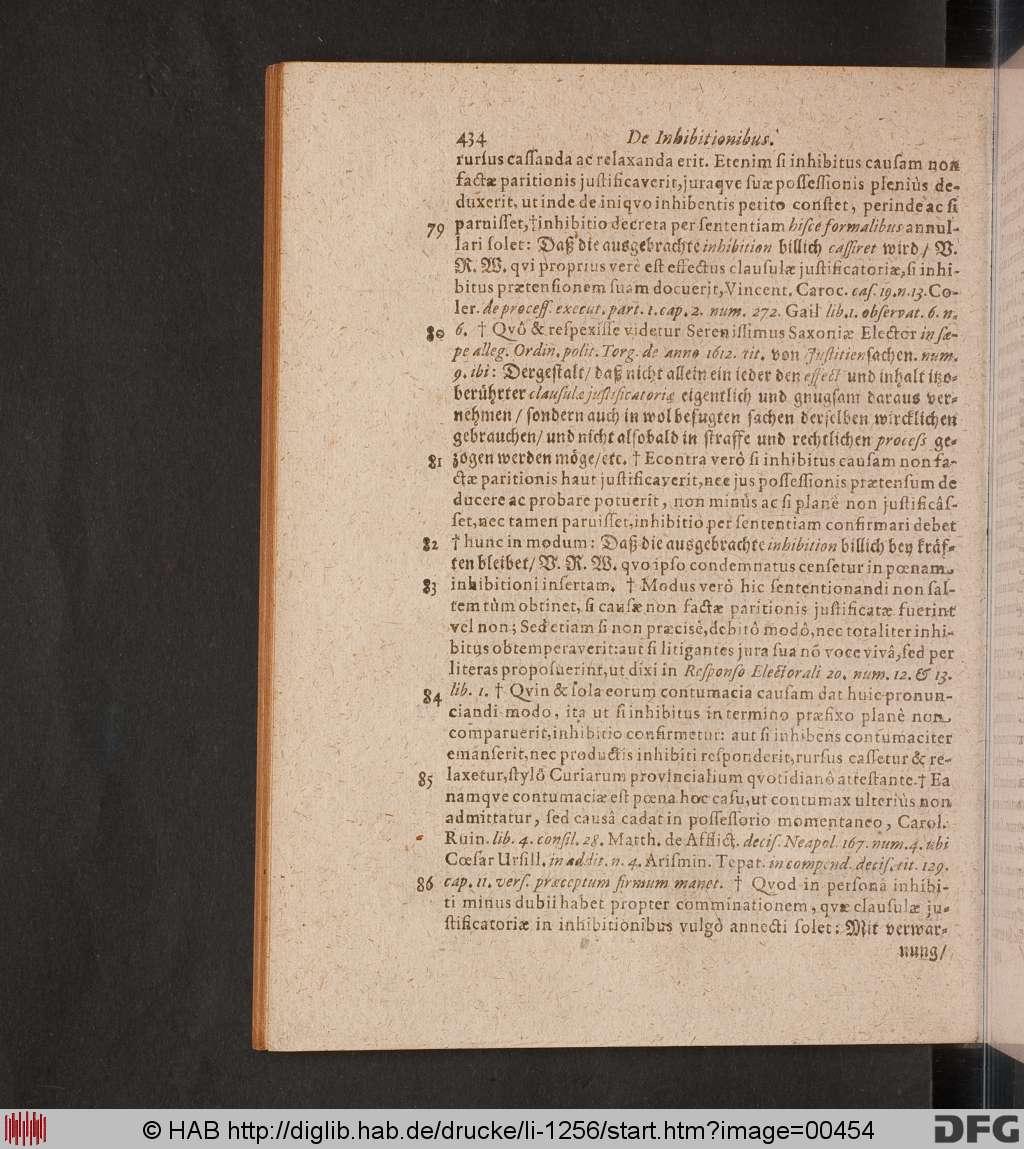 434 De Inhibitionibus.
rursus cassanda ac relaxanda erit. Etenim si inhibitus causam non
factæ paritionis justificaverit, juraqve suæ possessionis pleniùs de-
duxerit, ut inde de iniqvo inhibentis petito constet, perinde ac si
79 paruisset, †inhibitio decreta per sententiam hisce formalibus annul-
lari solet: Daß die ausgebrachte inhibition billich cassiret wird / V.
R. W. qvi proprius verè est effectus clausulæ justificatoriæ, si inhi-
bitus prætensionem suam docuerit, Vincent. Caroc. cas. 19. n. 13. Co-
ler. de process. execut. part. 1. cap. 2. num. 272. Gail lib. 1. observat. 6. n.
80 6. † Qvô & respexisse videtur Serenissimus Saxoniæ Elector in sæ-
pe alleg. Ordin. polit. Torg. de anno 1612. tit. von Justitiensachen. num.
9. ibi: Dergestalt / daß nicht allein ein ieder den effect und inhalt itzo-
berührter clausulæ justificatoriæ eigentlich und gnugsam daraus ver-
nehmen / sondern auch in wol befugten sachen derselben wircklichen
gebrauchen / und nicht alsobald in straffe und rechtlichen process ge-
81 zogen werden möge / etc. † Econtra verò si inhibitus causam non fa-
ctæ paritionis haut justificaverit, nec jus possessionis prætensum de
ducere ac probare potuerit, non minùs ac si planè non justificâs-
set, nec tamen paruisset, inhibitio per sententiam confirmari debet
82 † hunc in modum: Daß die ausgebrachte inhibition billich bey kräf-
ten bleibet / V. R. W. qvo ipso condemnatus censetur in pœnam
83 inhibitioni insertam. † Modus verò hic sententionandi non sal-
tem tùm obtinet, si causæ non factæ paritionis justificatæ fuerint
vel non; Sed etiam si non præcisè, debitô modô, nec totaliter inhi-
bitus obtemperaverit: aut si litigantes jura sua nō voce vivâ, sed per
literas proposuerint, ut dixi in Responso Electorali 20. num. 12. & 13.
84 lib. 1. † Qvin & sola eorum contumacia causam dat huic pronun-
ciandi modo, ita ut si inhibitus in termino præfixo planè non
comparuerit, inhibitio confirmetur: aut si inhibens contumaciter
emanserit, nec productis inhibiti responderit, rursus cassetur & re-
85 laxetur, stylô Curiarum provincialium qvotidianô attestante. † Ea
namqve contumaciæ est pœna hoc casu, ut contumax ulteriùs non
admittatur, sed causâ cadat in possessorio momentaneo, Carol.
Ruin. lib. 4. consil. 28. Matth. de Afflict. decis. Neapol. 167. num. 4. ubi
Cœsar Ursill. in addit. n. 4. Arismin. Tepat. in compend. decis. tit. 129.
86 cap. 11. vers. præceptum firmum manet. † Qvod in personâ inhibi-
ti minus dubii habet propter comminationem, qvæ clausulæ ju-
stificatoriæ in inhibitionibus vulgò annecti solet: Mit verwar-
nung /
© HAB http://diglib.hab.de/drucke/li-1256/start.htm?image=00454
DFG